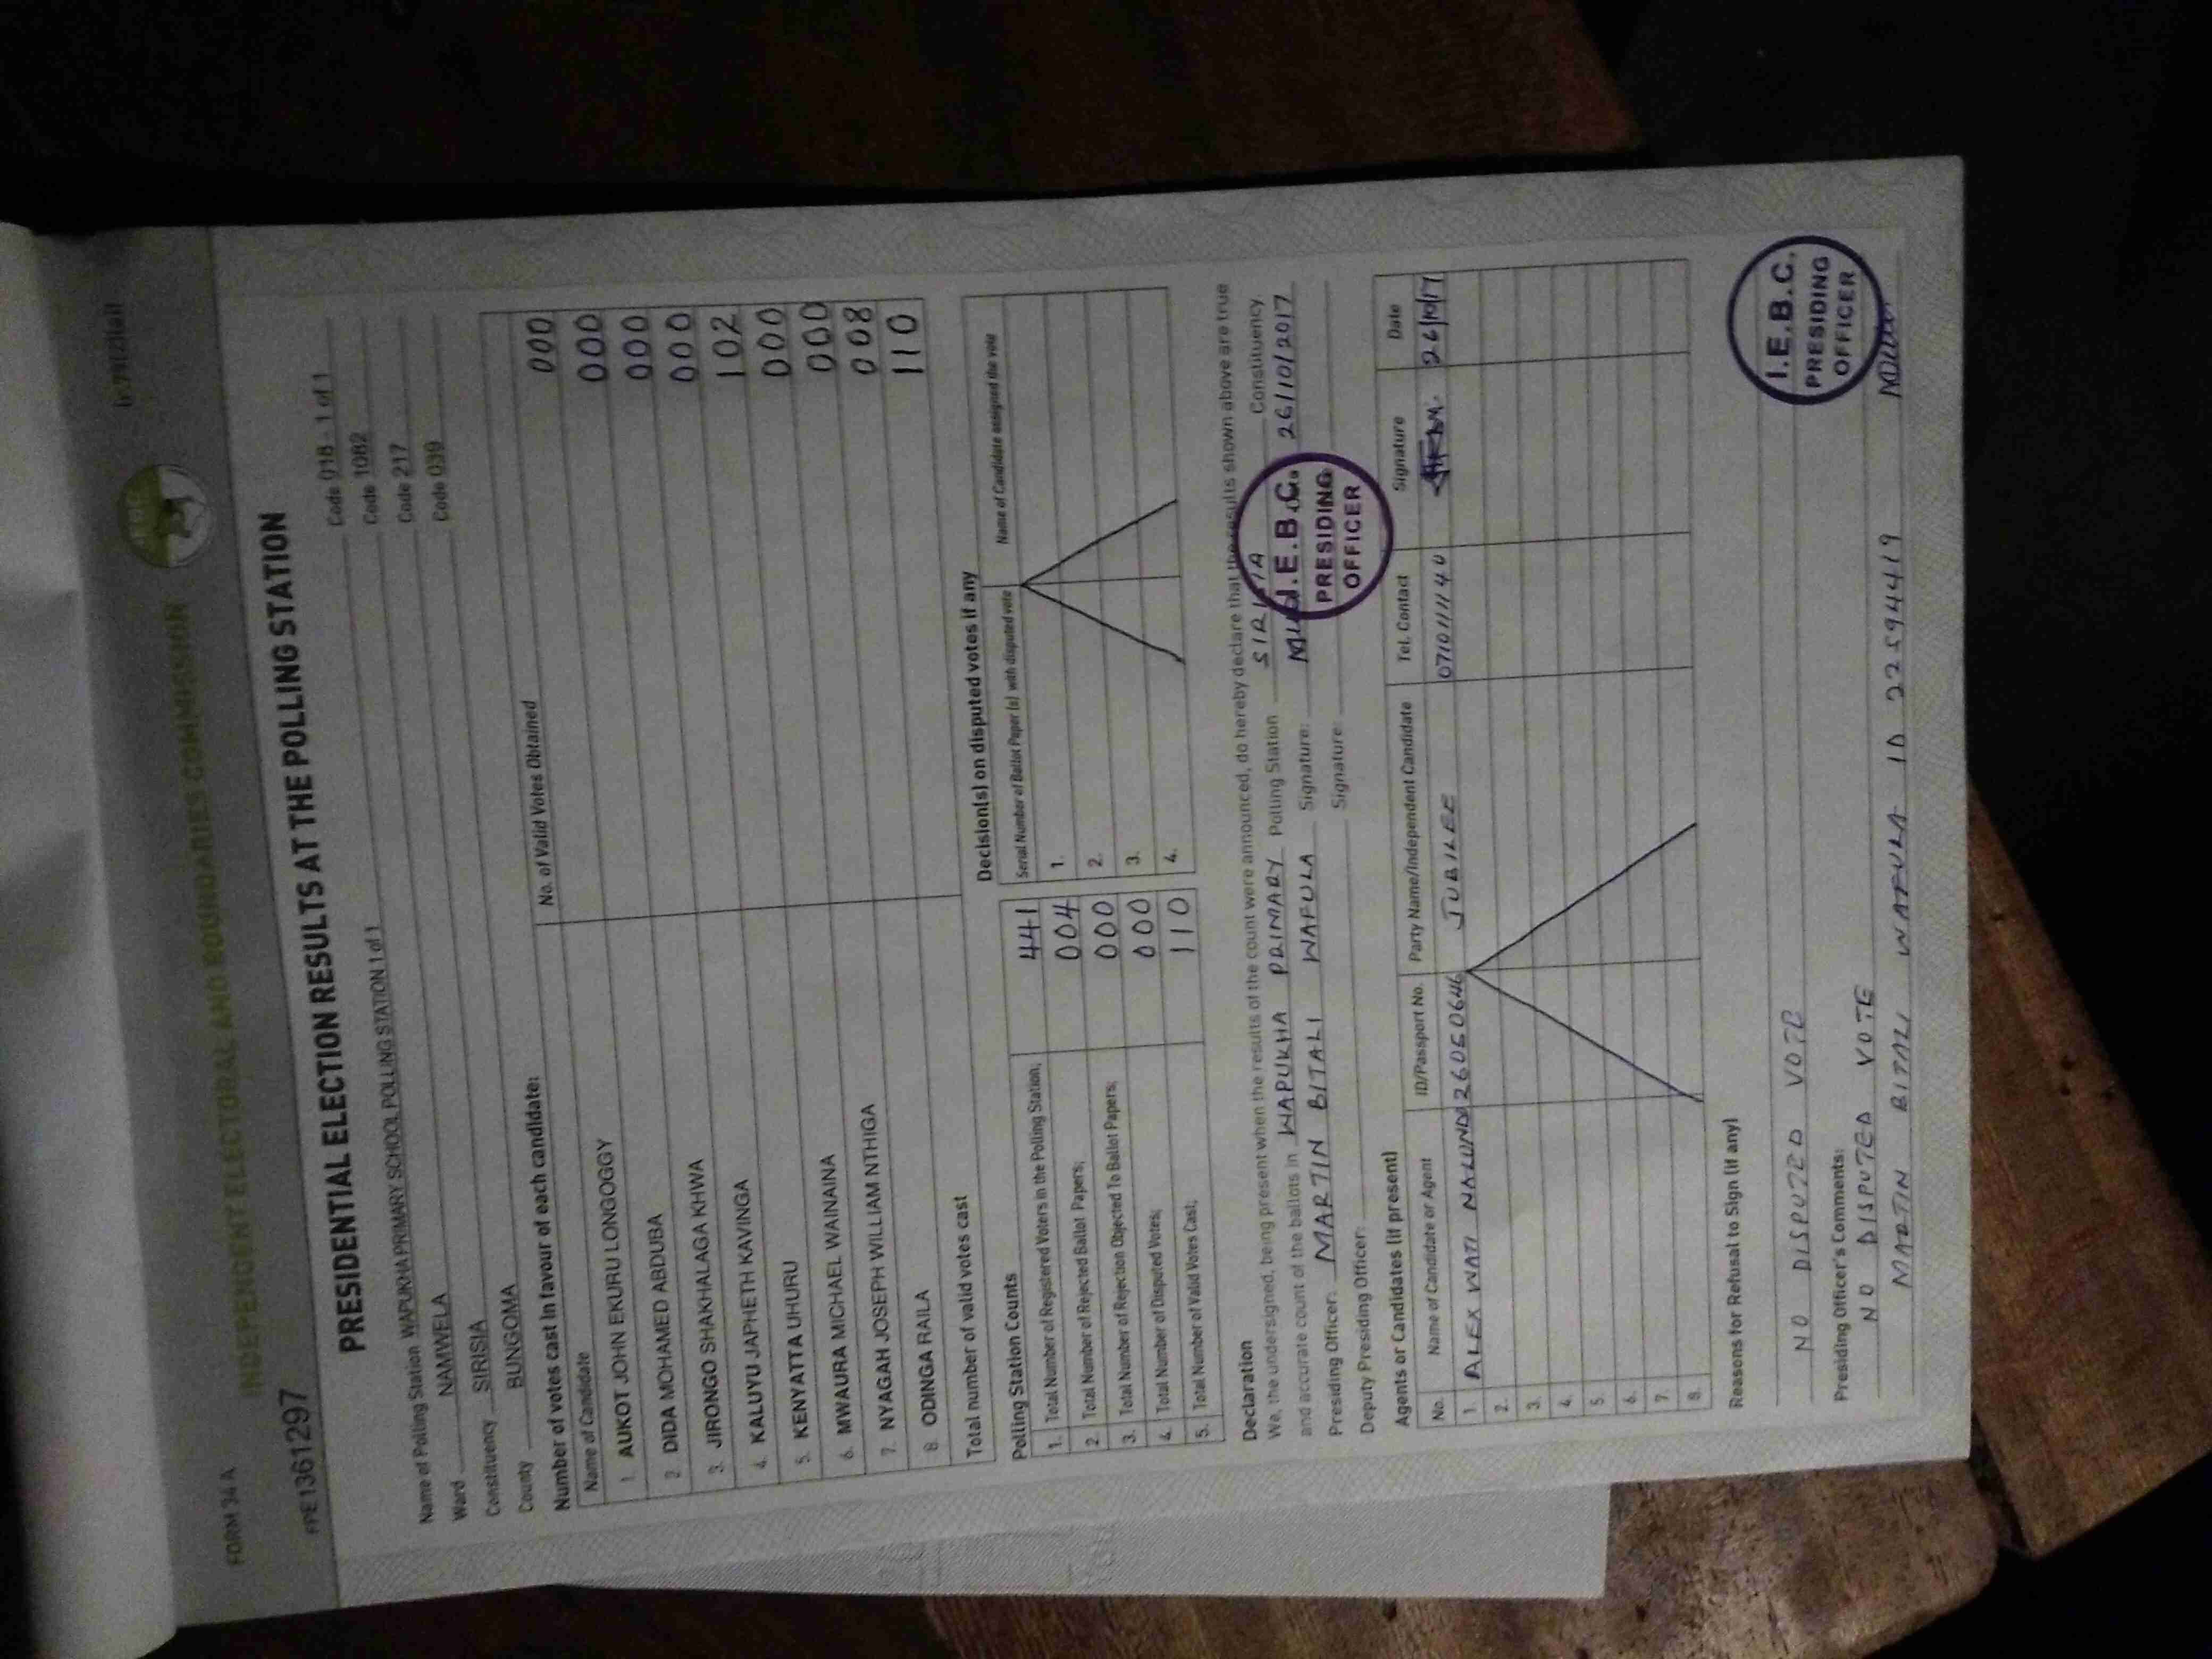 FORM 34 A
INDEPENDENT ELECTORAL AND BOUNDARIES COMMISSION
FPE1361297
PRESIDENTIAL ELECTION RESULTS AT THE POLLING STATION
Name of Polling Station WAPUKHA PRIMARY SCHOOL POLLING STATION 1 of 1 Code 018 - 1 of 1
Ward NAMWELA Code 1082
Constituency SIRISIA Code 217
County BUNGOMA Code 039
Number of votes cast in favour of each candidate:
Name of Candidate No. of Valid Votes Obtained
1. AUKOT JOHN EKURU LONGOGGY 000
2. DIDA MOHAMED ABDUBA 000
3. JIRONGO SHAKHALAGA KHWA 000
4. KALUYU JAPHETH KAVINGA 000
5. KENYATTA UHURU 102
6. MWAURA MICHAEL WAINAINA 000
7. NYAGAH JOSEPH WILLIAM NTHIGA 000
8. ODINGA RAILA 008
Total number of valid votes cast 110
Polling Station Counts
1. Total Number of Registered Voters in the Polling Station; 441
2. Total Number of Rejected Ballot Papers; 004
3. Total Number of Rejection Objected To Ballot Papers; 000
4. Total Number of Disputed Votes; 000
5. Total Number of Valid Votes Cast; 110
Decision(s) on disputed votes if any
Serial Number of Ballot Paper (s) with disputed vote Name of Candidate assigned the vote
1.
2.
3.
4.
Declaration
We, the undersigned, being present when the results of the count were announced, do hereby declare that the results shown above are true
and accurate count of the ballots in WAPUKHA PRIMARY Polling Station SIRISIA Constituency.
Presiding Officer: MARTIN BITALI WAFULA Signature: 26/10/2017
Deputy Presiding Officer: Signature:
I.E.B.C.
PRESIDING
OFFICER
Agents or Candidates (if present)
No. Name of Candidate or Agent ID/Passport No. Party Name/Independent Candidate Tel. Contact Signature Date
1. ALEX WATI JUBILEE 26/10/17
2.
3.
4.
5.
6.
7.
8.
Reasons for Refusal to Sign (if any)
NO DISPUTED VOTE
Presiding Officer's Comments:
NO DISPUTED VOTE
MARTIN BITALI WAFULA ID 22594419
I.E.B.C.
PRESIDING
OFFICER